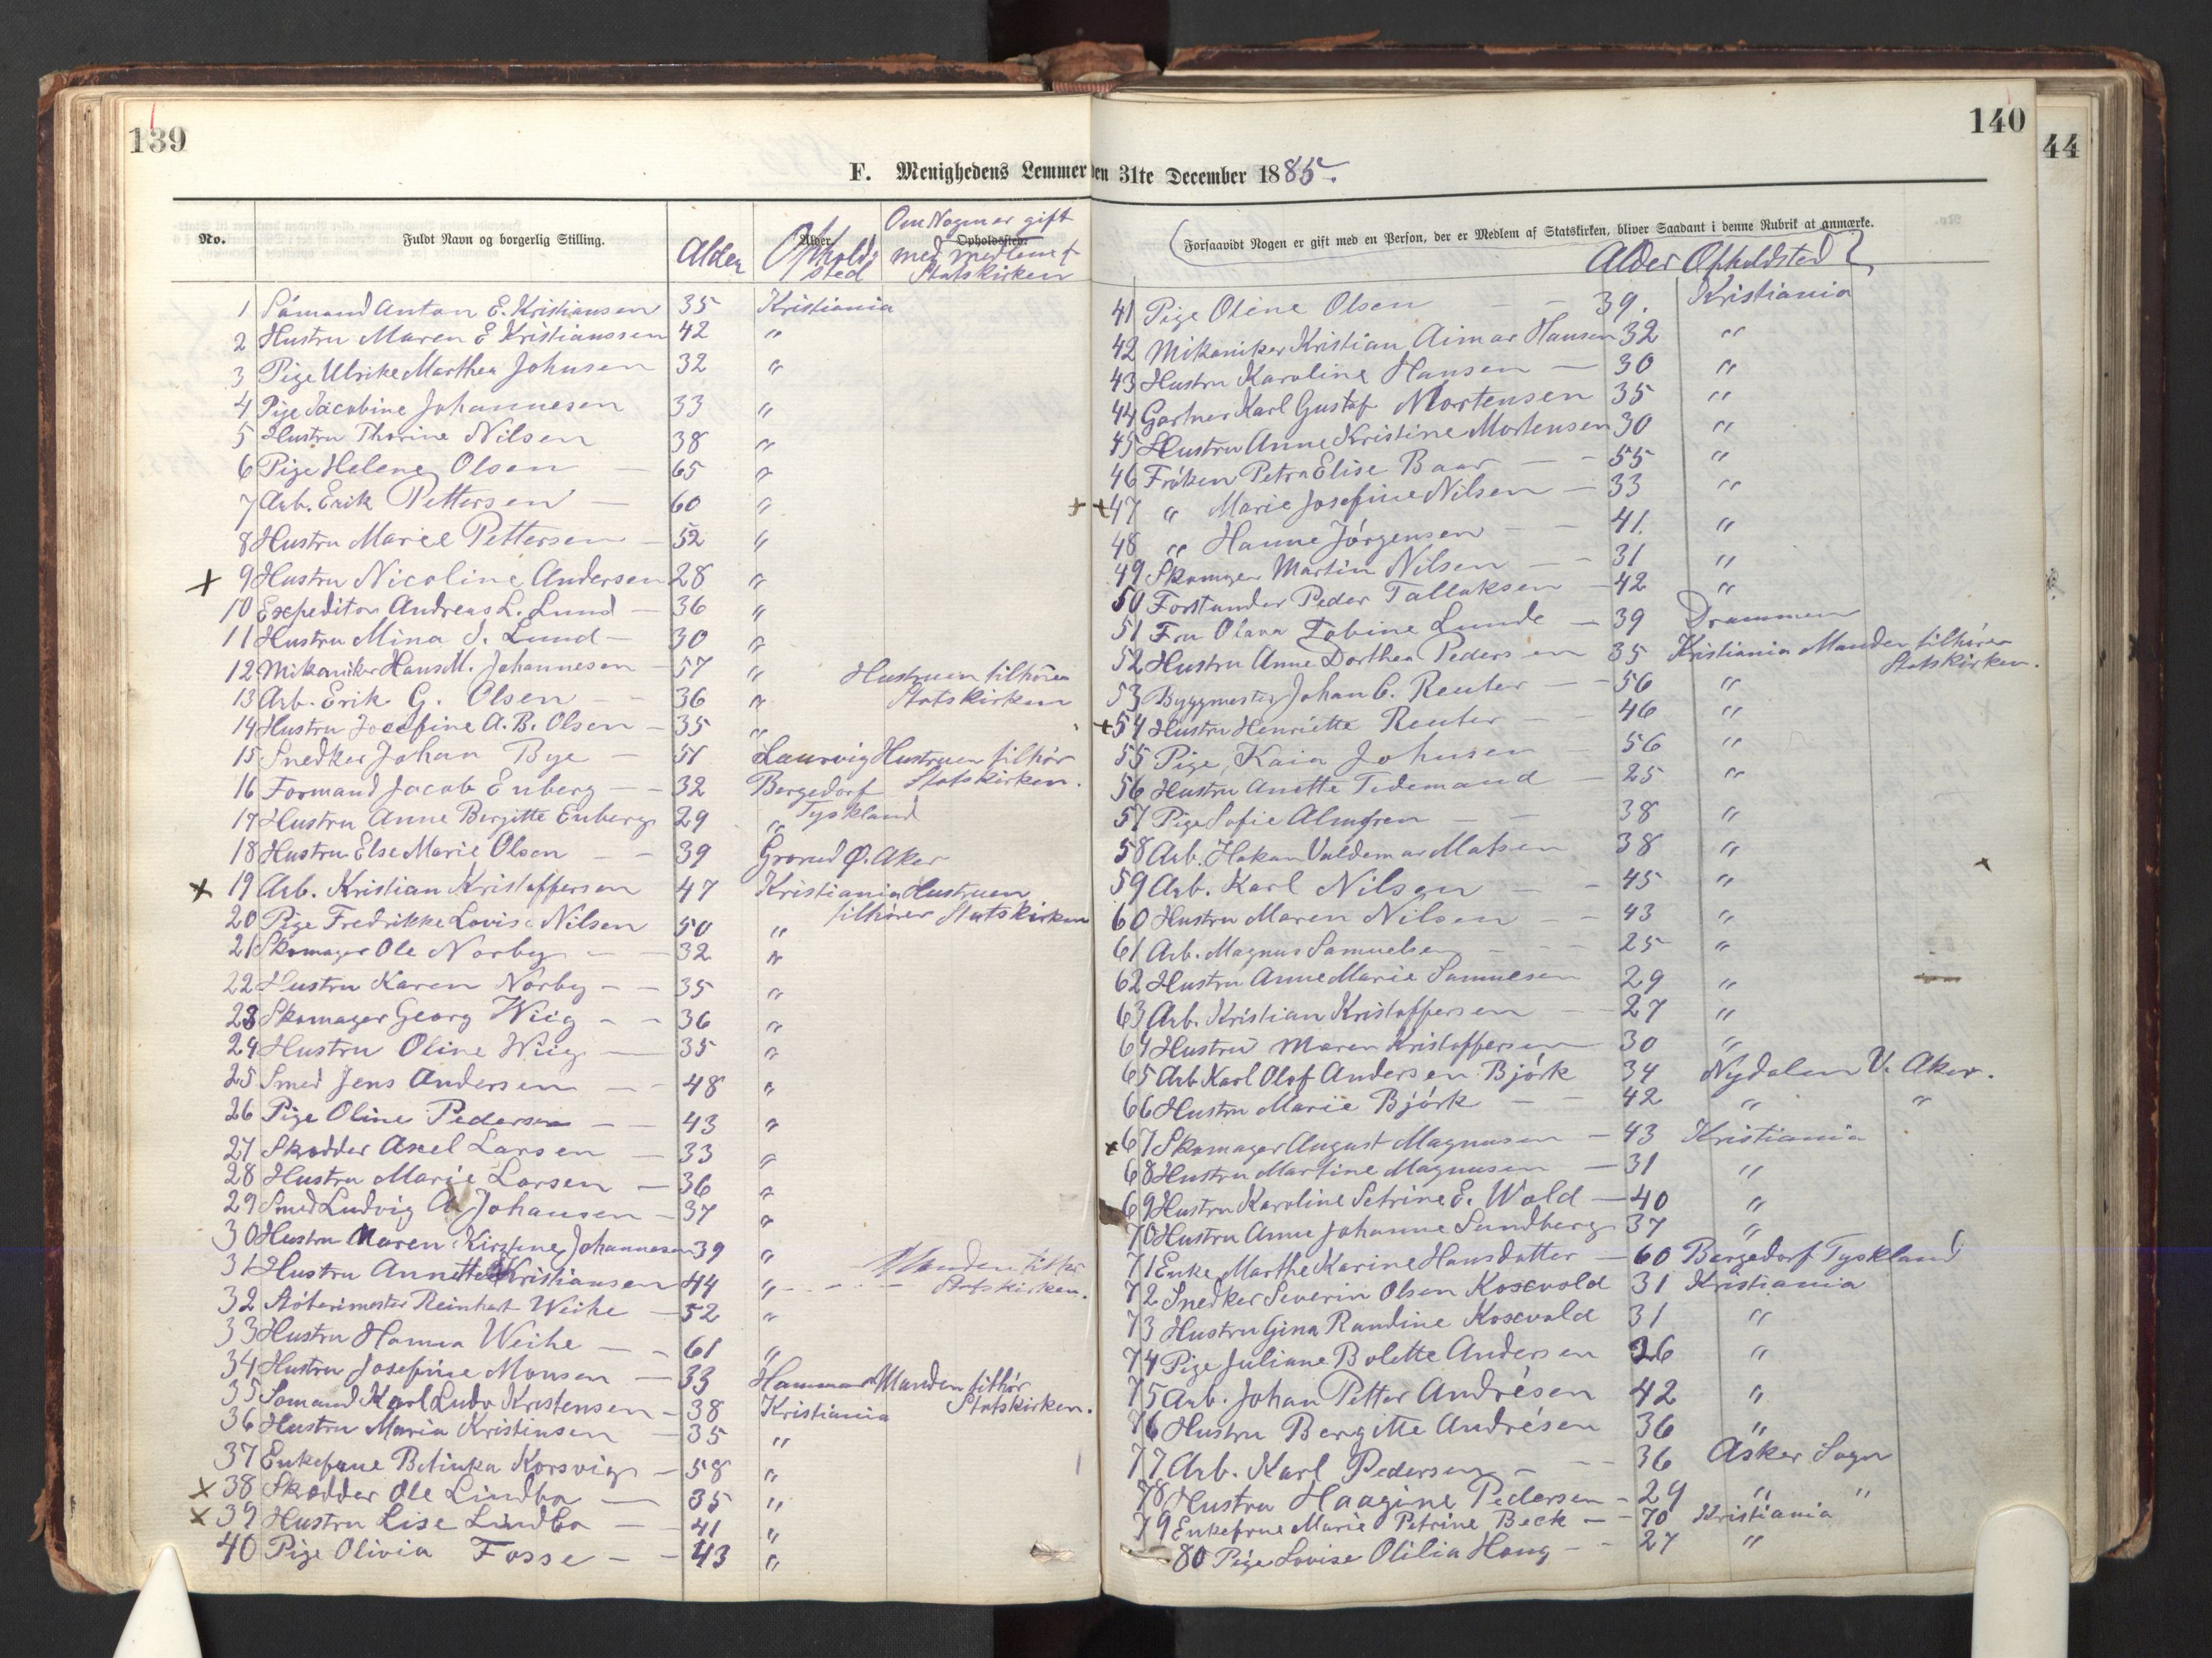 139
F. Menighedens Lemmer den 31te December 1885.
No. Fuldt Navn og borgerlig Stilling. Alder Opholdssted Om Nogen er gift med medlem af Statskirken
Alder. Opholdssted.
1 Sömand Anton E. Kristiansen 35 Kristiania
2 Hustru Maren E Kristianssen 42 "
3 Pige Ulrike Marthea Johnsen 32 "
4 Pige Jacobine Johannesen 33 "
5 Hustru Thorine Nilsen 38 "
6 Pige Helene Olsen — 65 "
7 Arb. Erik Pettersen — 60 "
8 Hustru Marie Pettersen — 52 "
+ 9 Hustru Nicoline Andersen 28 "
10 Expeditør Andreas L. Lund — 36 "
11 Hustru Mina J. Lund — 30 "
12 Mikaniker Hans M. Johannesen — 57 " Hustruen tilhörer
13 Arb. Erik G. Olsen — 36 " Statskirken
14 Hustru Josefine A. B. Olsen — 35 "
15 Snedker Johan Bye — 51 Laurvig Hustruen tilhör
16 Formand Jacob Enberg — — 32 Bergedorf Statskirken.
17 Hustru Anne Bergitte Enberg 29 " Tyskland
18 Hustru Else Marie Olsen — — 39 Grorud Ø. Aker
+ 19 Arb. Kristian Kristoffersen 47 Kristiania Hustruen
20 Pige Fredrikke Lovise Nilsen 50 " tilhörer Statskirken
21 Skomager Ole Norby — — 32 "
22 Hustru Karen Norby — — 35 "
23 Skomager Georg Wiig — — 36 "
24 Hustru Oline Wiig — 35 "
25 Smed Jens Andersen — — 48 "
26 Pige Oline Pedersen — — 43 "
27 Skrædder Axel Larsen — 33 "
28 Hustru Marie Larsen — 36 "
29 Smed Ludvig A. Johansen — 37 "
30 Hustru Maren Kirstine Johannesen 39 "
31 Hustru Annette Kristiansen 44 " — — — Manden tilhö
32 Stöberimester Reinhart Weihe — 52 " Statskirken.
33 Hustru Hanna Weihe — — 61 "
34 Hustru Josefine Monsen — 33 Hammer Manden tilhör
35 Sömand Karl Ludv Kristensen — 38 Kristiania Statskirken.
36 Hustru Maria Kristinsen — 35 "
37 Enkefrue Betinka Korsvig — 58 "
x 38 Skrædder Ole Lindbo — 35 "
x 39 Hustru Lise Lindbo — 41 "
40 Pige Olivia Fosse — — 43 "
140
44
Forsaavidt Nogen er gift med en Person, der er Medlem af Statskirken, bliver Saadant i denne Rubrik at anmærke.
Alder Opholdsted
41 Pige Oline Olsen — — 39. Kristiania
42 Mikaniker Kristian Aimar Hansen 32 "
43 Hustru Karoline Hansen — 30 "
44 Gartner Karl Gustaf Mortensen 35 "
45 Hustru Anne Kristine Mortensen 30 "
46 Fröken Petra Elise Baar — — 55 "
+ + 47 " Marie Josefine Nilsen — 33 "
48 " Hanne Jörgensen — — 41. "
49 Skomager Martin Nilsen — — 31 "
50 Forstander Peder Tallaksen — 42 "
51 Fru Olava Tobine Lunde — 39 Drammen
52 Hustru Anne Dorthea Pedersen 35 Kristiania Manden tilhörer
53 Byggmester Johan C. Reuter — — 56 " Statskirken.
+ 54 Hustru Henriette Reuter — — 46 "
55 Pige Kaia Johnsen — 56 "
56 Hustru Anette Tidemand — 25 "
57 Pige Sofie Almgren — — 38 "
58 Arb. Hakan Valdemar Matsen 38 "
59 Arb. Karl Nilsen — — 45 "
60 Hustru Maren Nilsen — — 43 "
61 Arb. Magnus Samuelsen — — — 25 "
62 Hustru Anne Marie Samuesen 29 "
63 Arb. Kristian Kristoffersen — 27 "
64 Hustru Maren Kristoffersen — 30 "
65 Arb Karl Olof Andersen Björk 34 Nydalen V. Aker.
66 Hustru Marie Björk — — 42 " "
x 67 Skomager August Magnusen — 43 Kristiania
68 Hustru Martine Magnusen — 31 "
69 Hustru Karoline Petrine E. Wold — 40 "
70 Hustru Anne Johanne Sundberg 37 "
71 Enke Marthe Karine Hansdatter — 60 Bergedorf Tyskland
72 Snedker Severin Olsen Kosevold 31 Kristiania
73 Hustru Gina Randine Kosevold 31 "
74 Pige Juliane Bolette Andersen 26 "
75 Arb. Johan Petter Andrésen 42 "
76 Hustru Bergitte Andrésen 36 "
77 Arb. Karl Pedersen — — 36 Asker Sogn
78 Hustru Haagine Pedersen — 29 " "
79 Enkefrue Marie Petrine Beck — — 70 Kristiania
80 Pige Lovise Otilia Haug — — 27 "